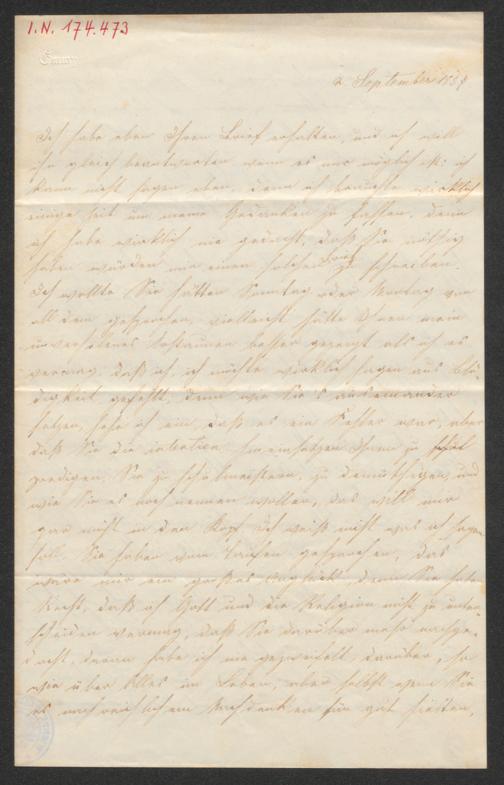 I.N. 174.473
2 September 18
Ich habe eben Ihren Brief erhalten, und ich will
ihn gleich beantworten wenn es nur möglich ist; ich
kann nicht sagen eben, denn ich brauchte wirklich
einige Zeit um meine Gedanken zu fassen, denn
ich habe wirklich nie gedacht, daß Sie nöthig
haben würden mir einen solchen Brief zu schreiben.
Ich wollte Sie hätten Sonntag oder Montag von
all dem gesprochen, vielleicht hätte Ihnen mein
Erstaunen besser gezeigt als ich es
vermag, daß ich, ich möchte wirklich sagen aus Blö-
digkeit gefehlt; denn wie Sie's auseinander
setzen, sehe ich ein, daß es ein Fehler war, aber
daß Sie die intention Ihnen zu
predigen, Sie zu schulmeistern, zu demüthigen, und
wie Sie es noch nennen wollen, das will mir
gar nicht in den Kopf. Ich weiß nicht was ich sagen
soll. Sie haben vom gesprochen, das
wäre mir ein großes Unglück, denn Sie haben
Recht, daß ich Gott und die Religion nicht zu unter-
scheiden vermag, daß Sie darüber mehr nachge-
dacht, daran habe ich nie gezweifelt, darüber, so
wie über Alles im Leben, aber selbst wenn Sie
es nach reiflichem Nachdenken für gut hielten,